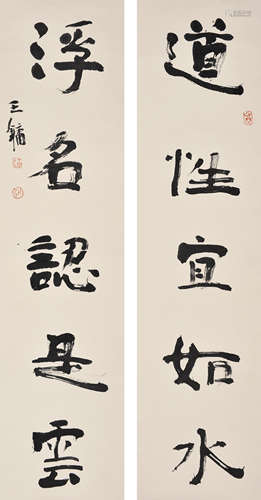 道性宜如水
浮名認是雲
王鏞